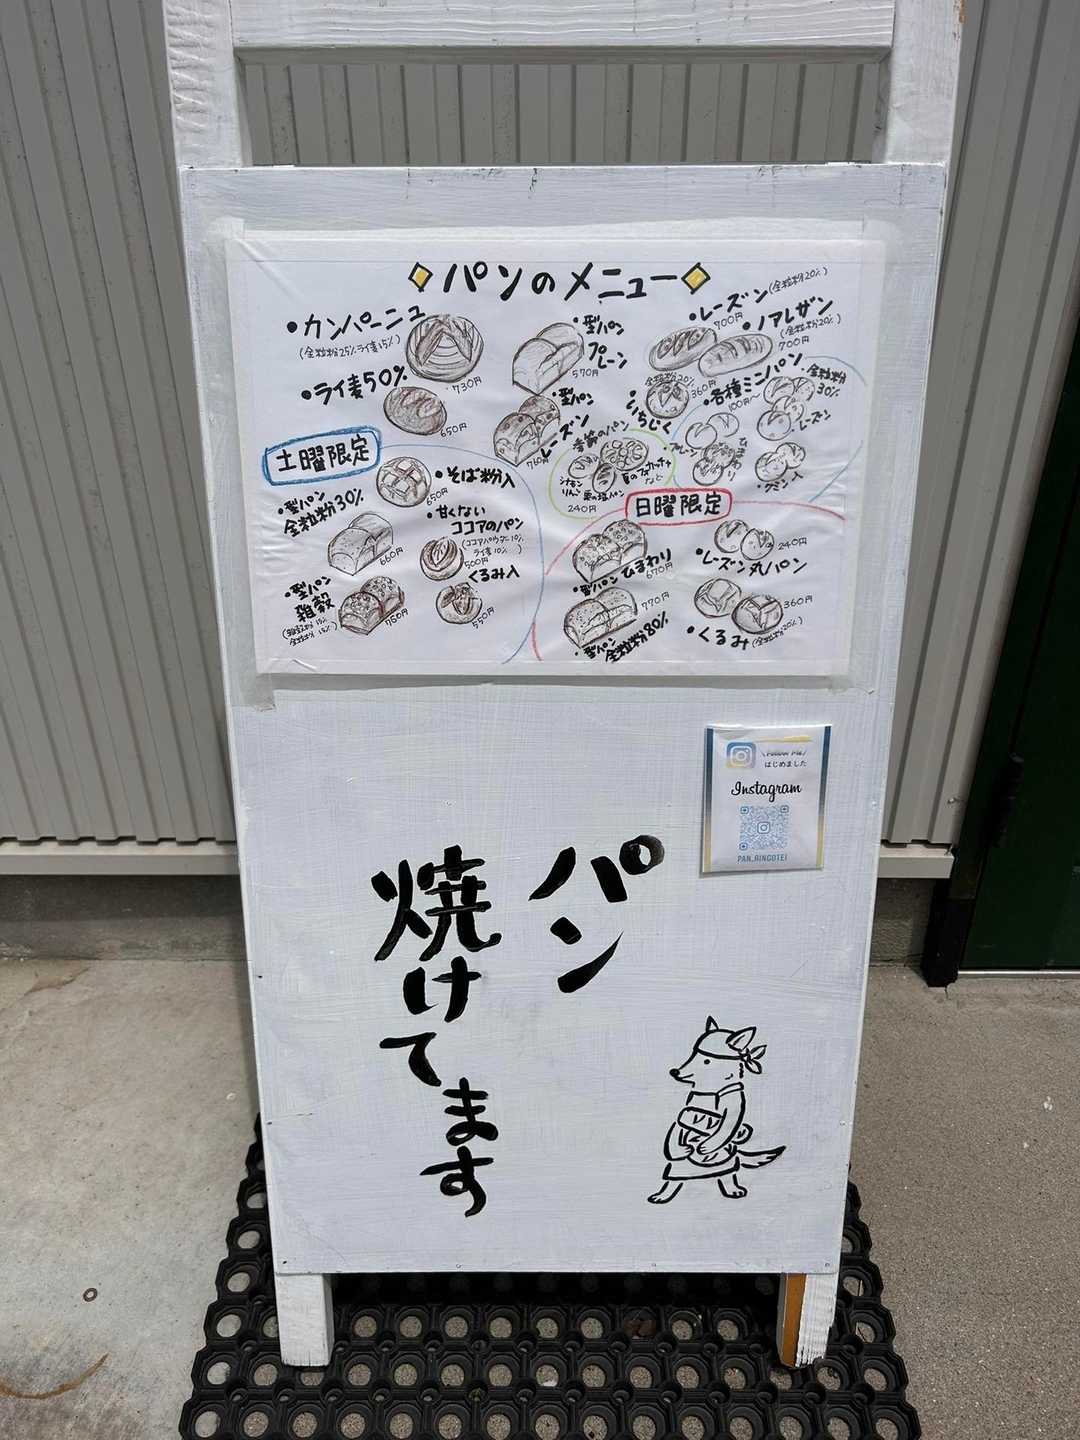 パンのメニュー
・カンパーニュ
(全粒粉25% ライ麦15%)
730円
・ライ麦50%
650円
・型パン
プレーン
570円
・型パン
レーズン
760円
・レーズン(全粒粉20%)
700円
・ノアレザン
(全粒粉20%)
700円
・いちじく
全粒粉20%
360円
・各種ミニパン
100円〜
・全粒粉
30%
・レーズン
・プレーン
・ひまわり
・クミン入
季節のパン
シナモン
りんご
栗の塩パン
夏のフォカッチャ
など
240円
土曜限定
・型パン
全粒粉30%
660円
・型パン
雑穀
760円
・そば粉入
650円
・甘くない
ココアのパン
(ココアパウダー10%
ライ麦10%)
500円
・くるみ入
550円
日曜限定
・型パン ひまわり
670円
・型パン 全粒粉80%
770円
・レーズン丸パン
240円
・くるみ(全粒粉20%)
360円
\Follow Me/
はじめました
Instagram
PAN_RINGOTEI
パン
焼けてます